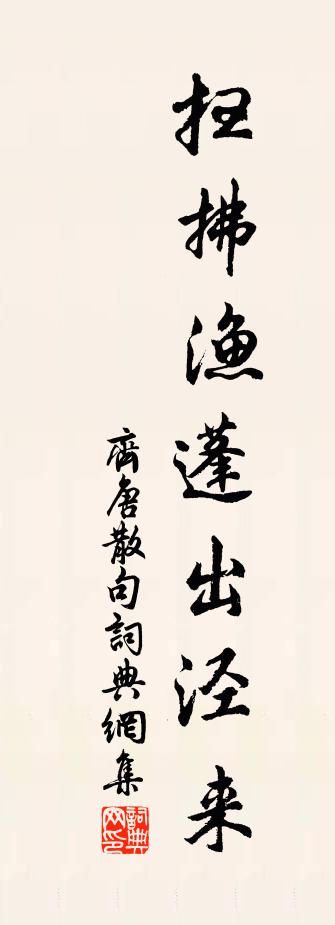 扫拂渔蓬出泾来
齊唐散句詞典網集
詞典网印